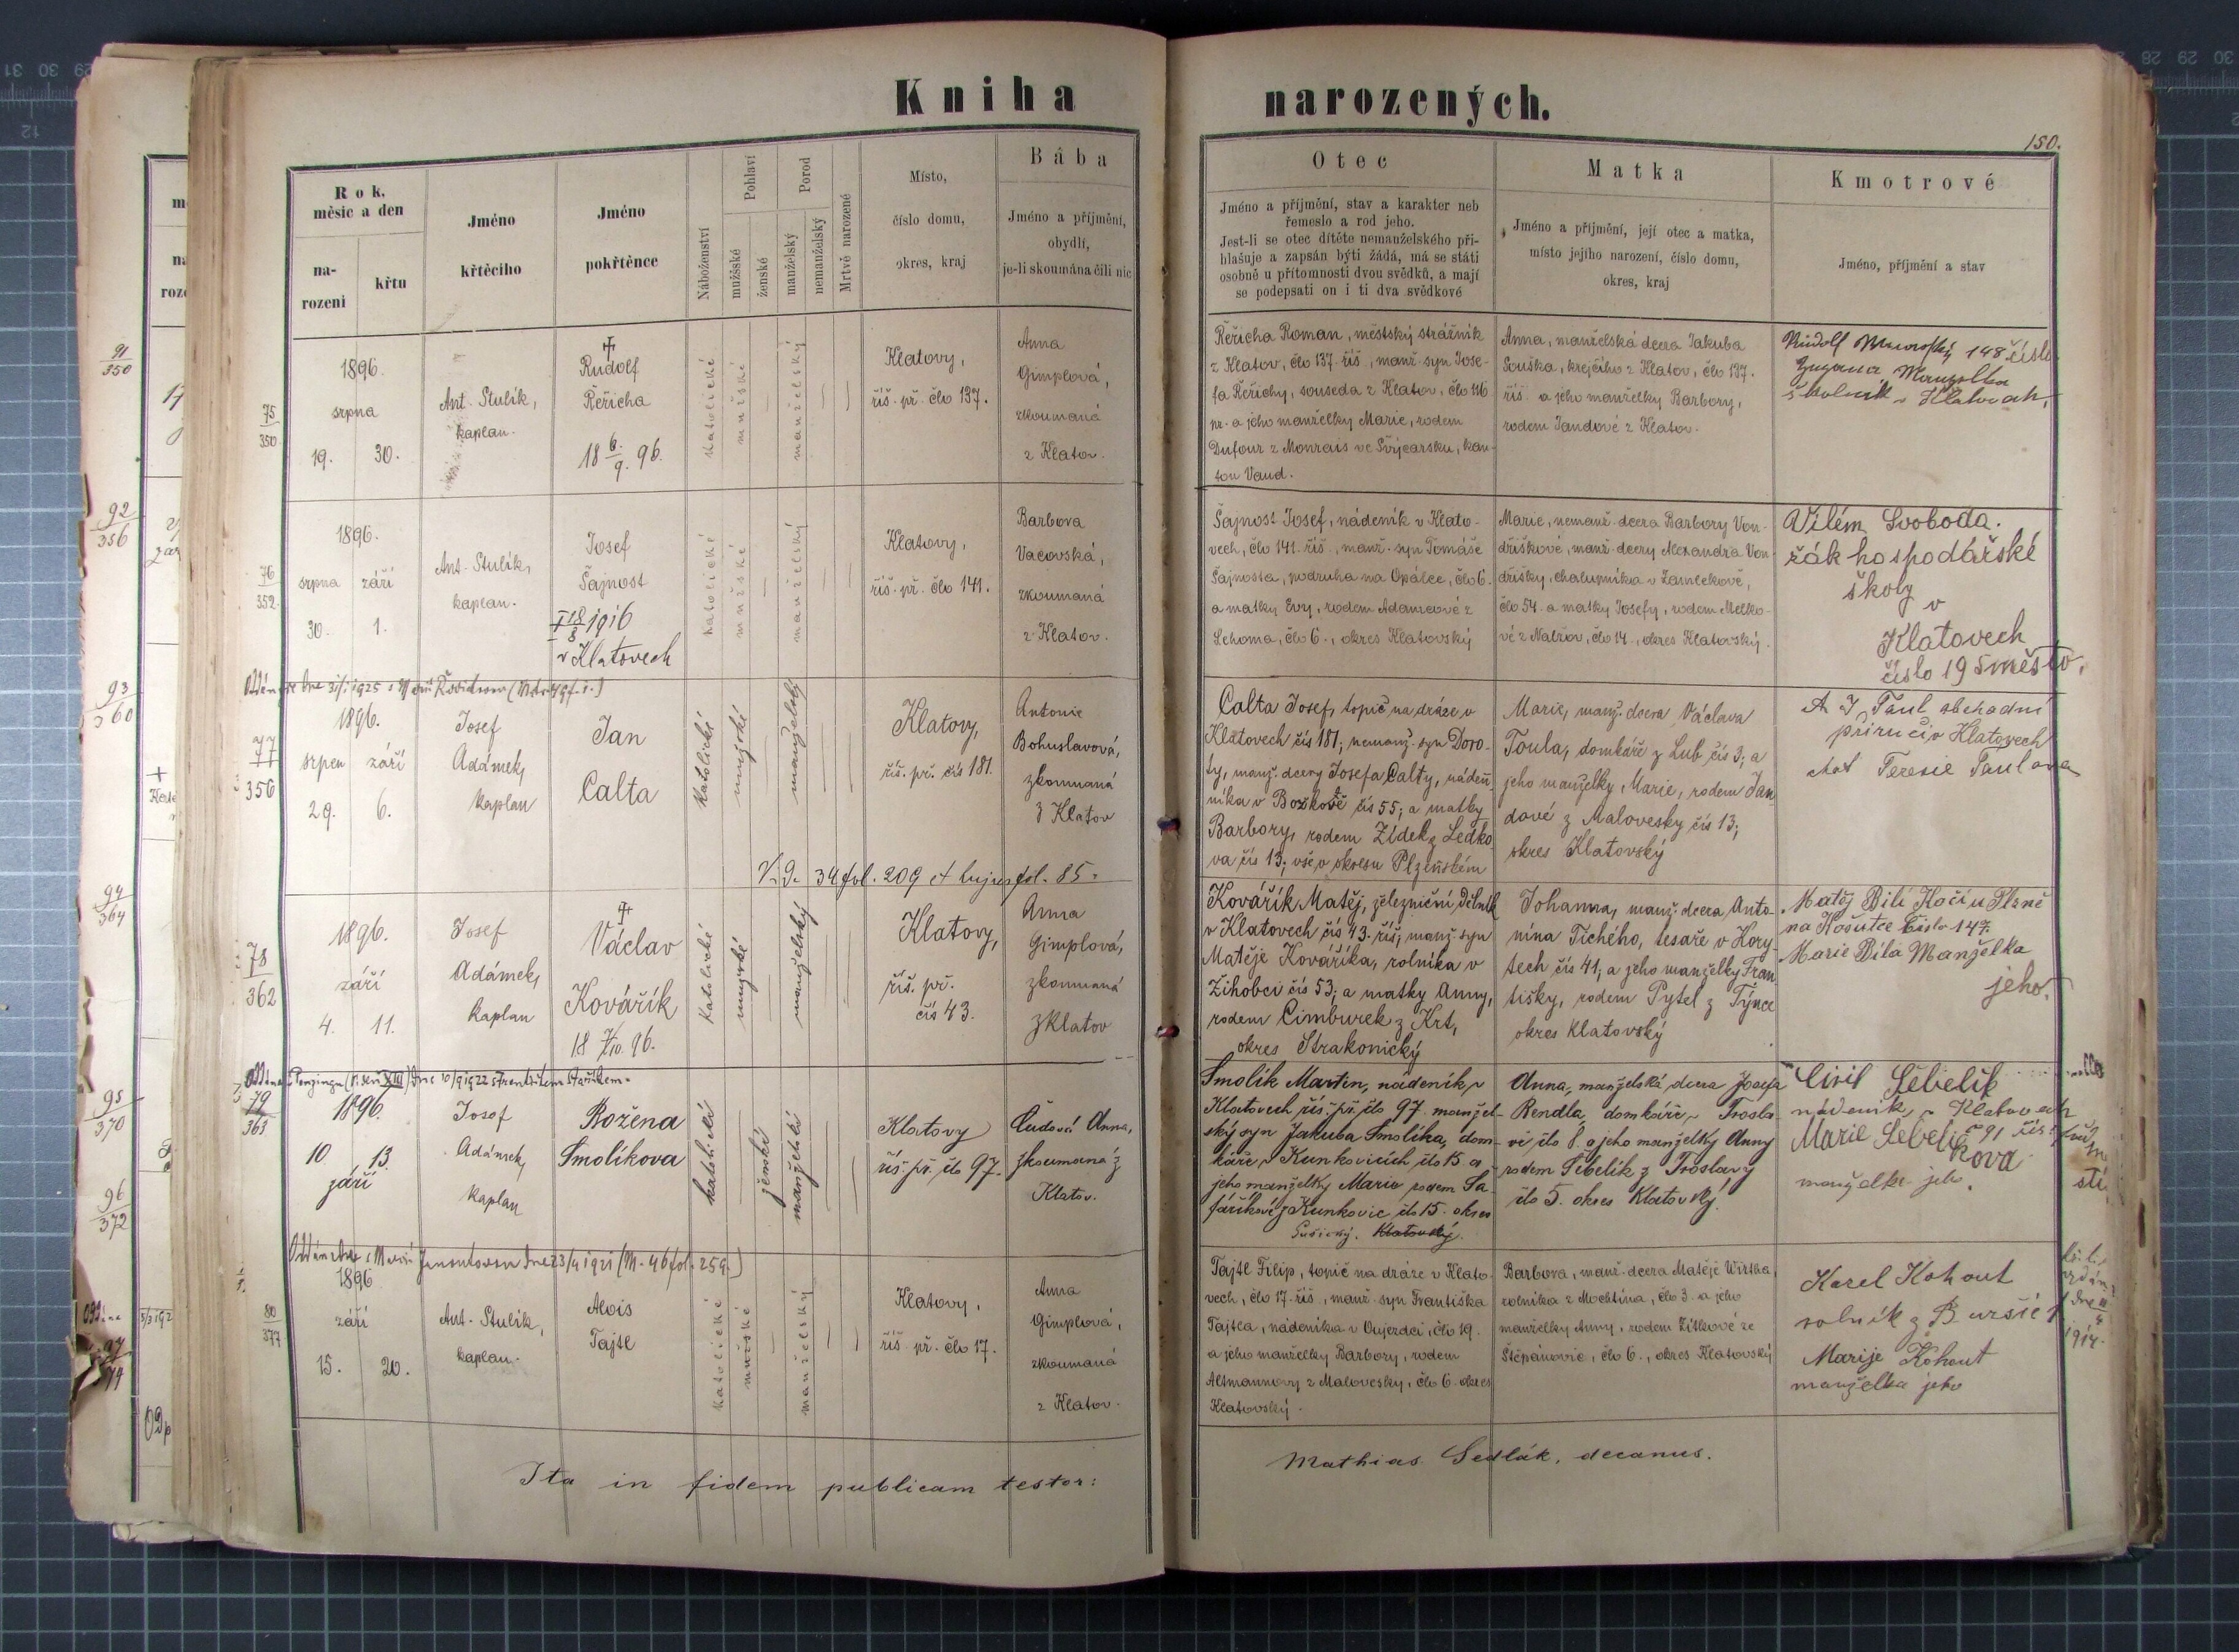 Kniha narozených.
150.
Rok, měsíc a den
narození
křtu
Jméno křtěcího
Jméno pokřtěnce
Náboženství
Pohlaví
mužské
ženské
Porod
manželský
nemanželský
Mrtvě narozené
Místo,
číslo domu,
okres, kraj
Bába
Jméno a příjmění,
obydlí,
je-li skoumána čili nic
Otec
Jméno a příjmění, stav a karakter neb
řemeslo a rod jeho.
Jest-li se otec dítěte nemanželského při-
hlašuje a zapsán býti žádá, má se státi
osobně u přítomnosti dvou svědků, a mají
se podepsati on i ti dva svědkové
Matka
Jméno a příjmění, její otec a matka,
místo jejího narození, číslo domu,
okres, kraj
Kmotrové
Jméno, příjmění a stav
91
350
75
350
1896.
srpna
19. 30.
Ant. Stulík,
kaplan.
Rudolf
Řeřicha
18 6/9. 96.
katolické
mužské
manželský
Klatovy,
říš. př. člo 137.
Anna
Gimplová,
zkoumaná
z Klatov.
Řeřicha Roman, městský strážník
z Klatov, člo 137. říš., manž. syn Jose-
fa Řeřichy, souseda z Klatov, člo 116
pr. a jeho manželky Marie, rodem
Dufour z Monrais ve Švýcarsku, kan-
ton Vaud.
Anna, manželská dcera Jakuba
Souška, krejčího z Klatov, člo 137.
říš. a jeho manželky Barbory,
rodem Jandové z Klatov.
Rudolf 148 číslo
školník v Klatovach,
92
356
76
352.
1896.
srpna září
30. 1.
Ant. Stulík,
kaplan.
Josef
Šajnost
18/8 1916
v Klatovech
katolické
mužské
manželský
Klatovy,
říš. př. člo 141.
Barbora
Vacovská,
zkoumaná
z Klatov.
Šajnost Josef, nádeník v Klato-
vech, člo 141. říš., manž. syn Tomáše
Šajnosta, podruha na Opálce, člo 6.
a matky Evy, rodem Adamcové z
Lehoma, člo 6., okres Klatovský
Marie, nemanž. dcera Barbory Von-
dříškové, manž. dcery Alexandra Von-
dříšky, chalupníka v Zamlekově,
člo 54. a matky Josefy, rodem Melko-
vé z Nalžov, člo 14., okres Klatovský.
Vilém Svoboda.
žák hospodářské
školy
v
Klatovech
číslo 195 město.
93
360
77
356
1896.
srpen září
29. 6.
Josef
Adámek,
kaplan
Jan
Calta
katolické
mužské
manželský
Klatovy,
říš. př. čís 181.
Antonie
Bohuslavová,
zkoumaná
z Klatov
Calta Josef, topič na dráze v
Klatovech čís 181; nemanž. syn Doro-
ty, manž. dcery Josefa Calty, náden-
níka v Božkově čís 55; a matky
Barbory, rodem Zídek z Ledko
va čís 13; vše v okresu Plzeňském
Marie, manž. dcera Václava
Toula, domkáře z Lub čís 3; a
jeho manželky, Marie, rodem Jan
dové z Malovesky čís 13;
okres Klatovský
A J Taul obchodní
příručí v Klatovech
Teresie Taulova
34 fol. 209 et hujus fol. 85.
94
364
78
362
1896.
září
4. 11.
Josef
Adámek,
kaplan
Václav
Kovářík
18 7/10. 96.
katolické
mužské
manželský
Klatovy,
říš. př.
čís 43.
Anna
Gimplová,
zkoumaná
z Klatov
Kovářík Matěj, železniční dělník
v Klatovech čís 43. říš, manž. syn
Matěje Kováříka, rolníka v
Žihobci čís 53; a matky Anny,
rodem Cimburek z Krt,
okres Strakonický
Johanna, manž. dcera Anto-
nína Tichého, tesaře v Kory-
tech čís 41; a jeho manželky Fran
tišky, rodem Pytel z Týnce
okres Klatovský
Matěj Bílí Kočí u Plzně
na Košutce číslo 147.
Marie Bílá Manželka
jeho.
95
370
79
363
1896.
10 13.
září
Josef
Adámek,
kaplan
Božena
Smolíkova
katolické
ženské
manželské
Klatovy
říš. př. čís 97.
Čudová Anna,
zkoumaná z
Klatov.
Smolík Martin, nádeník, v
Klatovech říš. př. čís 97. manžel-
ský syn Jakuba Smolíka, dom-
káře v Kunkovicích čís 15. a
jeho manželky Marie rodem Ša-
faříkové z Kunkovic čís 15. okres
Sušický. Klatovský.
Anna, manželská dcera Josefa
Rendla, domkáře v Trosla-
vi čís 8. a jeho manželky Anny
rodem Šebelík z Troslavy
čís 5. okres Klatovský.
Civil Šebelík
nádeník, v Klatovech
Marie Šebelíkova
manželka jeho.
96
372
80
377
1896
září
15. 20.
Ant. Stulík,
kaplan.
Alois
Tajtl
katolické
mužské
manželský
Klatovy,
říš. př. člo 17.
Anna
Gimplová,
zkoumaná
z Klatov.
Tajtl Filip, topič na dráze v Klato-
vech, člo 17. říš., manž. syn Františka
Tajtla, nádeníka v Oujezdci, člo 19.
a jeho manželky Barbory, rodem
Altmannovy z Malovesky, člo 6. okres
Klatovský.
Barbora, manž. dcera Matěje Wirtha,
rolníka z Mochtína, člo 3. a jeho
manželky Anny, rodem Zítkové ze
Štěpánovic, člo 6., okres Klatovský
Karel Kohout
rolník z
Marije Kohout
manželka jeho
1914.
Ita in fidem publicam testor:
Mathias Sedlák, decanus.